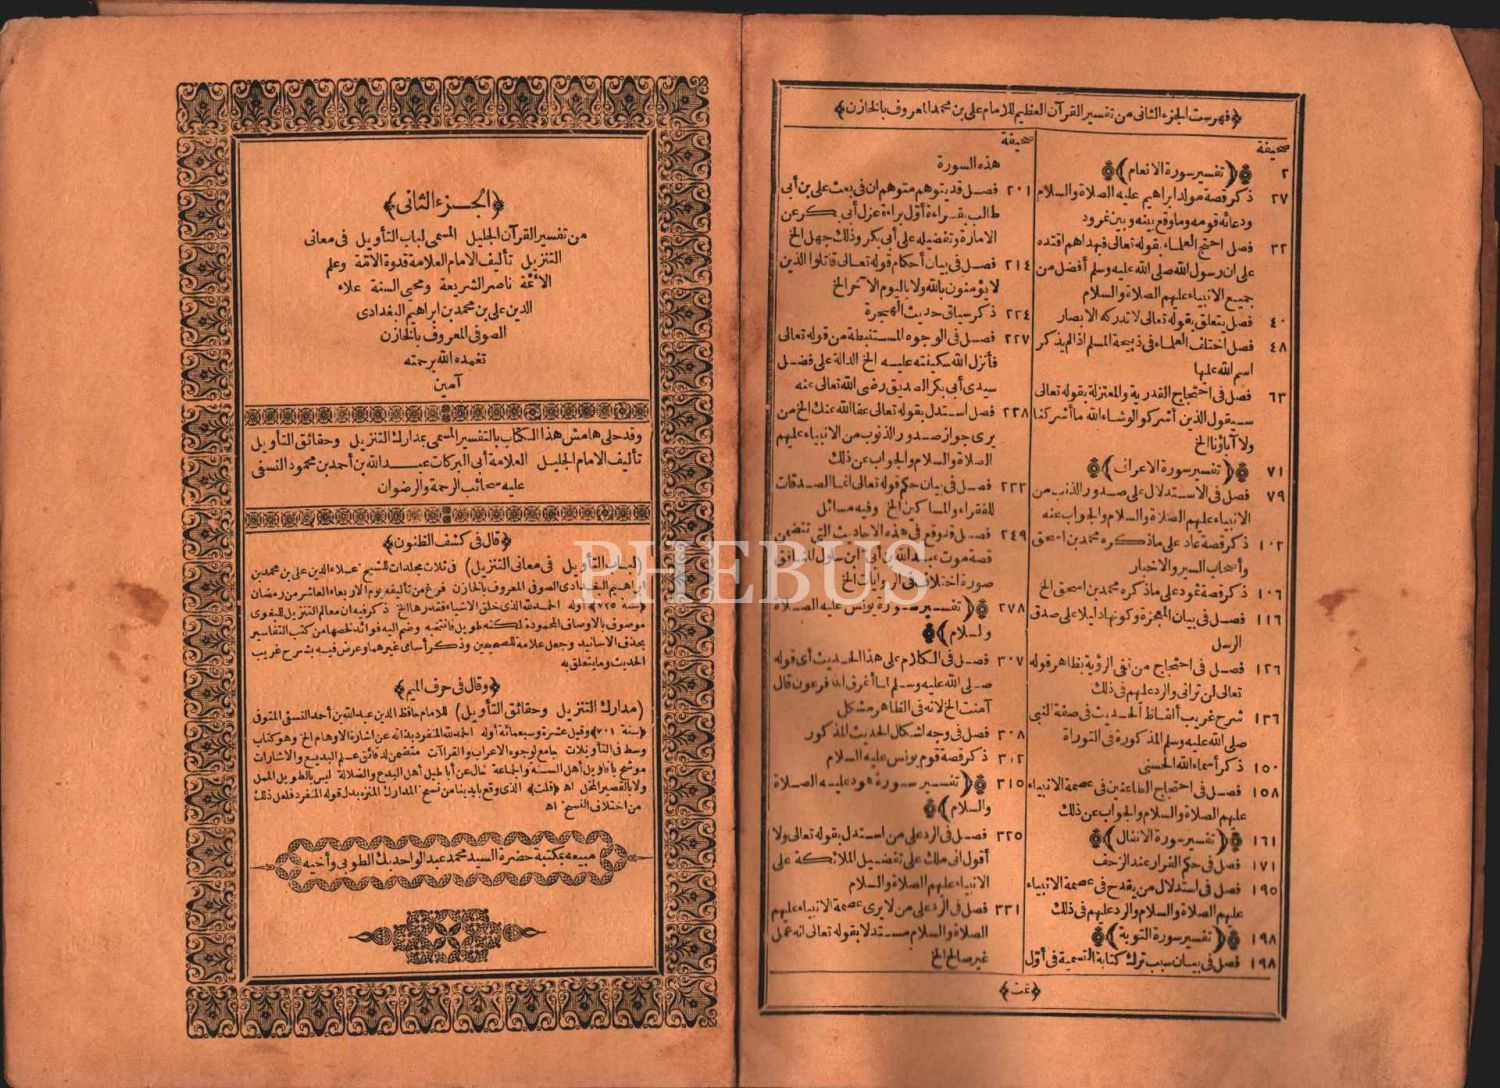 ﴿فهرست الجزء الثانى من تفسير القرآن العظيم للامام على بن محمد المعروف بالخازن﴾
صحيفة
٢ ﴿(تفسير سورة الانعام)﴾
٢٧ ذكر قصة مولد ابراهيم عليه الصلاة والسلام
ودعائه قومه وما وقع بينه وبين نمرود
٣٢ فصل احتج العلماء بقوله تعالى فبهداهم اقتده
على ان رسول الله صلى الله عليه وسلم أفضل من
جميع الانبياء عليهم الصلاة والسلام
٤٠ فصل يتعلق بقوله تعالى لا تدركه الابصار
٤٨ فصل اختلف العلماء فى ذبيحة المسلم اذا لم يذكر
اسم الله عليها
٦٣ فصل فى احتجاج القدرية والمعتزلة بقوله تعالى
سيقول الذين أشركوا لو شاء الله ما أشركنا
ولا آباؤنا الخ
٧١ ﴿(تفسير سورة الاعراف)﴾
٧٩ فصل فى الاستدلال على صدور الذنب من
الانبياء عليهم الصلاة والسلام والجواب عنه
١٠٢ ذكر قصة عاد على ما ذكره محمد بن اسحق
وأصحاب السير والاخبار
١٠٦ ذكر قصة ثمود على ما ذكره محمد بن اسحق الخ
١١٦ فصل فى بيان المعجزة وكونها دليلا على صدق
الرسل
١٢٦ فصل فى احتجاج من نفى الرؤية بظاهر قوله
تعالى لن ترانى والرد عليهم فى ذلك
١٣٦ شرح غريب ألفاظ الحديث فى صفة النبى
صلى الله عليه وسلم المذكورة فى التوراة
١٥٠ ذكر أسماء الله الحسنى
١٥٨ فصل فى احتجاج الطاعنين فى عصمة الانبياء
عليهم الصلاة والسلام والجواب عن ذلك
١٦١ ﴿(تفسير سورة الانفال)﴾
١٧١ فصل فى حكم الفرار عند الزحف
١٩٥ فصل فى استدلال من يقدح فى عصمة الانبياء
عليهم الصلاة والسلام والرد عليهم فى ذلك
١٩٨ ﴿(تفسير سورة التوبة)﴾
١٩٨ فصل فى بيان سبب ترك كتابة التسمية فى أول
صحيفة
هذه السورة
٢٠١ فصل قد يتوهم متوهم ان فى بعث على بن أبى
طالب بقراءة أول براءة عزل أبى بكر عن
الامارة وتفضيله على أبى بكر وذلك جهل الخ
٢١٤ فصل فى بيان أحكام قوله تعالى قاتلوا الذين
لا يؤمنون بالله ولا باليوم الآخر الخ
٢٢٤ ذكر سياق حديث الهجرة
٢٢٧ فصل فى الوجوه المستنبطة من قوله تعالى
فأنزل الله سكينته عليه الخ الدالة على فضل
سيدى أبى بكر الصديق رضى الله تعالى عنه
٢٢٨ فصل استدل بقوله تعالى عفا الله عنك الخ من
يرى جواز صدور الذنوب من الانبياء عليهم
الصلاة والسلام والجواب عن ذلك
٢٣٣ فصل فى بيان حكم قوله تعالى انما الصدقات
للفقراء والمساكين الخ وفيه مسائل
٢٤٩ فصل قد وقع فى هذه الاحاديث التى تتضمن
قصة موت عبد الله بن أبى ابن سلول المنافق
صورة اختلاف فى الروايات الخ
٢٧٨ ﴿(تفسير سورة يونس عليه الصلاة
والسلام)﴾
٣٠٧ فصل فى الكلام على هذا الحديث أى قوله
صلى الله عليه وسلم لما أغرق الله فرعون قال
آمنت الخ لانه فى الظاهر مشكل
٣٠٨ فصل فى وجه اشكال الحديث المذكور
ذكر قصة قوم يونس عليه السلام
٣١٥ ﴿(تفسير سورة هود عليه الصلاة
والسلام)﴾
٣٢٥ فصل فى الرد على من استدل بقوله تعالى ولا
أقول انى ملك على تفضيل الملائكة على
الانبياء عليهم الصلاة والسلام
٣٣١ فصل فى الرد على من لا يرى عصمة الانبياء عليهم
الصلاة والسلام مستدلا بقوله تعالى انه عمل
غير صالح الخ
﴿تمت﴾
﴿الجزء الثانى﴾
من تفسير القرآن الجليل المسمى لباب التأويل فى معانى
التنزيل تأليف الامام العلامة قدوة الامة وعلم
الأئمة ناصر الشريعة ومحيى السنة علاء
الدين على بن محمد بن ابراهيم البغدادى
الصوفى المعروف بالخازن
تغمده الله برحمته
آمين
وقد حلى هامش هذا الكتاب بالتفسير المسمى بمدارك التنزيل وحقائق التأويل
تأليف الامام الجليل العلامة أبى البركات عبد الله بن أحمد بن محمود النسفى
عليه سحائب الرحمة والرضوان
﴿قال فى كشف الظنون﴾
(لباب التأويل فى معانى التنزيل) فى ثلاث مجلدات للشيخ علاء الدين على بن محمد بن
ابراهيم البغدادى الصوفى المعروف بالخازن فرغ من تأليفه يوم الاربعاء العاشر من رمضان
﴿سنة ٧٢٥﴾ أوله الحمد لله الذى خلق الاشياء فقدرها الخ ذكر فيه ان معالم التنزيل للبغوى
موصوف بالاوصاف المحمودة لكنه طويل فانتخبه وضم اليه فوائد لخصها من كتب التفاسير
بحذف الاسانيد وجعل علامة للصحيحين وذكر أسامى غيرهما وعرض فيه بشرح غريب
الحديث وما يتعلق به
﴿وقال فى حرف الميم﴾
(مدارك التنزيل وحقائق التأويل) للامام حافظ الدين عبد الله بن أحمد النسفى المتوفى
﴿سنة ٧٠١﴾ وقيل عشرة وسبعمائة أوله الحمد لله المنفرد بذاته عن اشارة الاوهام الخ وهو كتاب
وسط فى التأويلات جامع لوجوه الاعراب والقراآت متضمن لدقائق علم البديع والاشارات
موشح بأقاويل أهل السنة والجماعة خال عن أباطيل أهل البدع والضلالة ليس بالطويل الممل
ولا بالقصير المخل اه ﴿قلت﴾ الذى وقع بأيدينا من نسخ المدارك المنزه بدل قوله المنفرد فلعل ذلك
من اختلاف النسخ اه
مبيعه بمكتبة حضرة السيد محمد عبد الواحد بك الطوبى وأخيه
PHEBUS